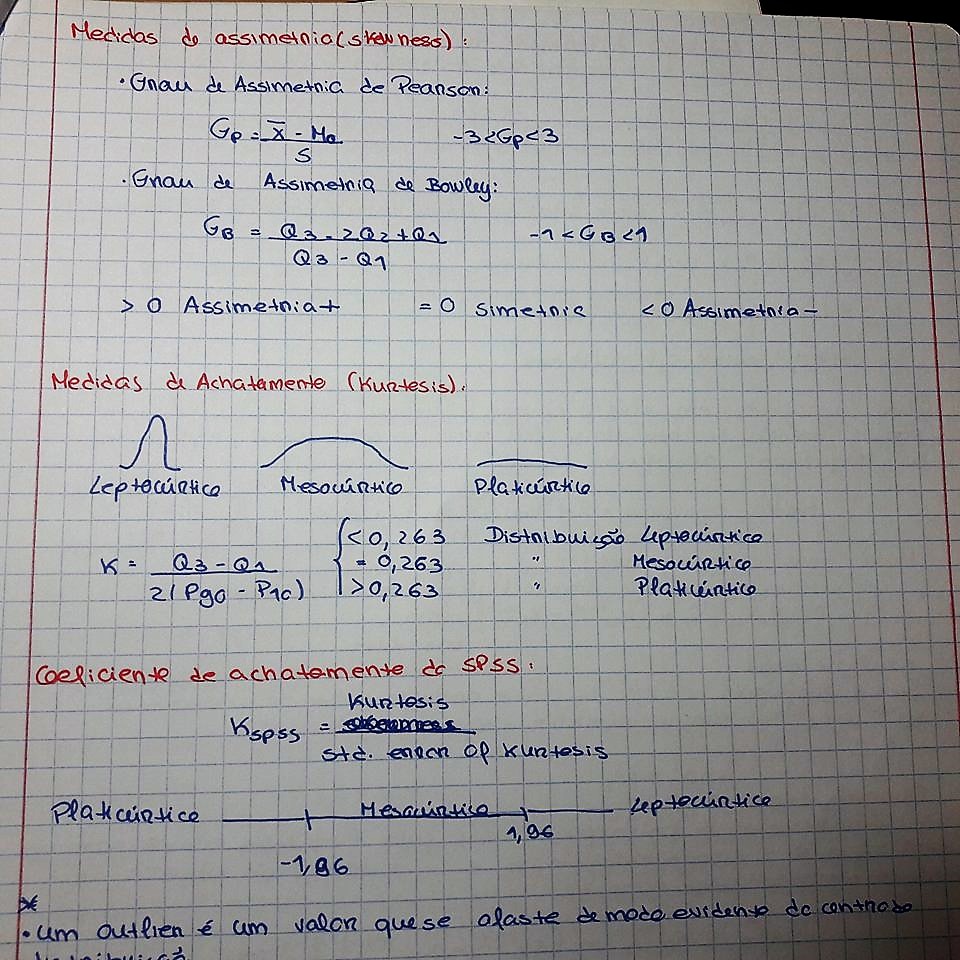 Medidas de assimetria (skewness):
• Grau de Assimetria de Pearson:
Gp = x̄ - Mo / S    -3 < Gp < 3
• Grau de Assimetria de Bowley:
GB = Q3 - 2Q2 + Q1 / Q3 - Q1    -1 < GB < 1
> 0 Assimetria +    = 0 Simetria    < 0 Assimetria -
Medidas de Achatamento (Kurtosis):
Leptocúrtico    Mesocúrtico    Platicúrtico
< 0,263    Distribuição Leptocúrtico
K = Q3 - Q1 / 2(P90 - P10)    = 0,263    "    Mesocúrtico
> 0,263    "    Platicúrtico
Coeficiente de achatamento do SPSS:
Kurtosis
Kspss =
std. error of Kurtosis
Platicúrtico    Mesocúrtico    Leptocúrtico
1,96
-1,96
*
• um outlier é um valor que se afaste de modo evidente do centro da